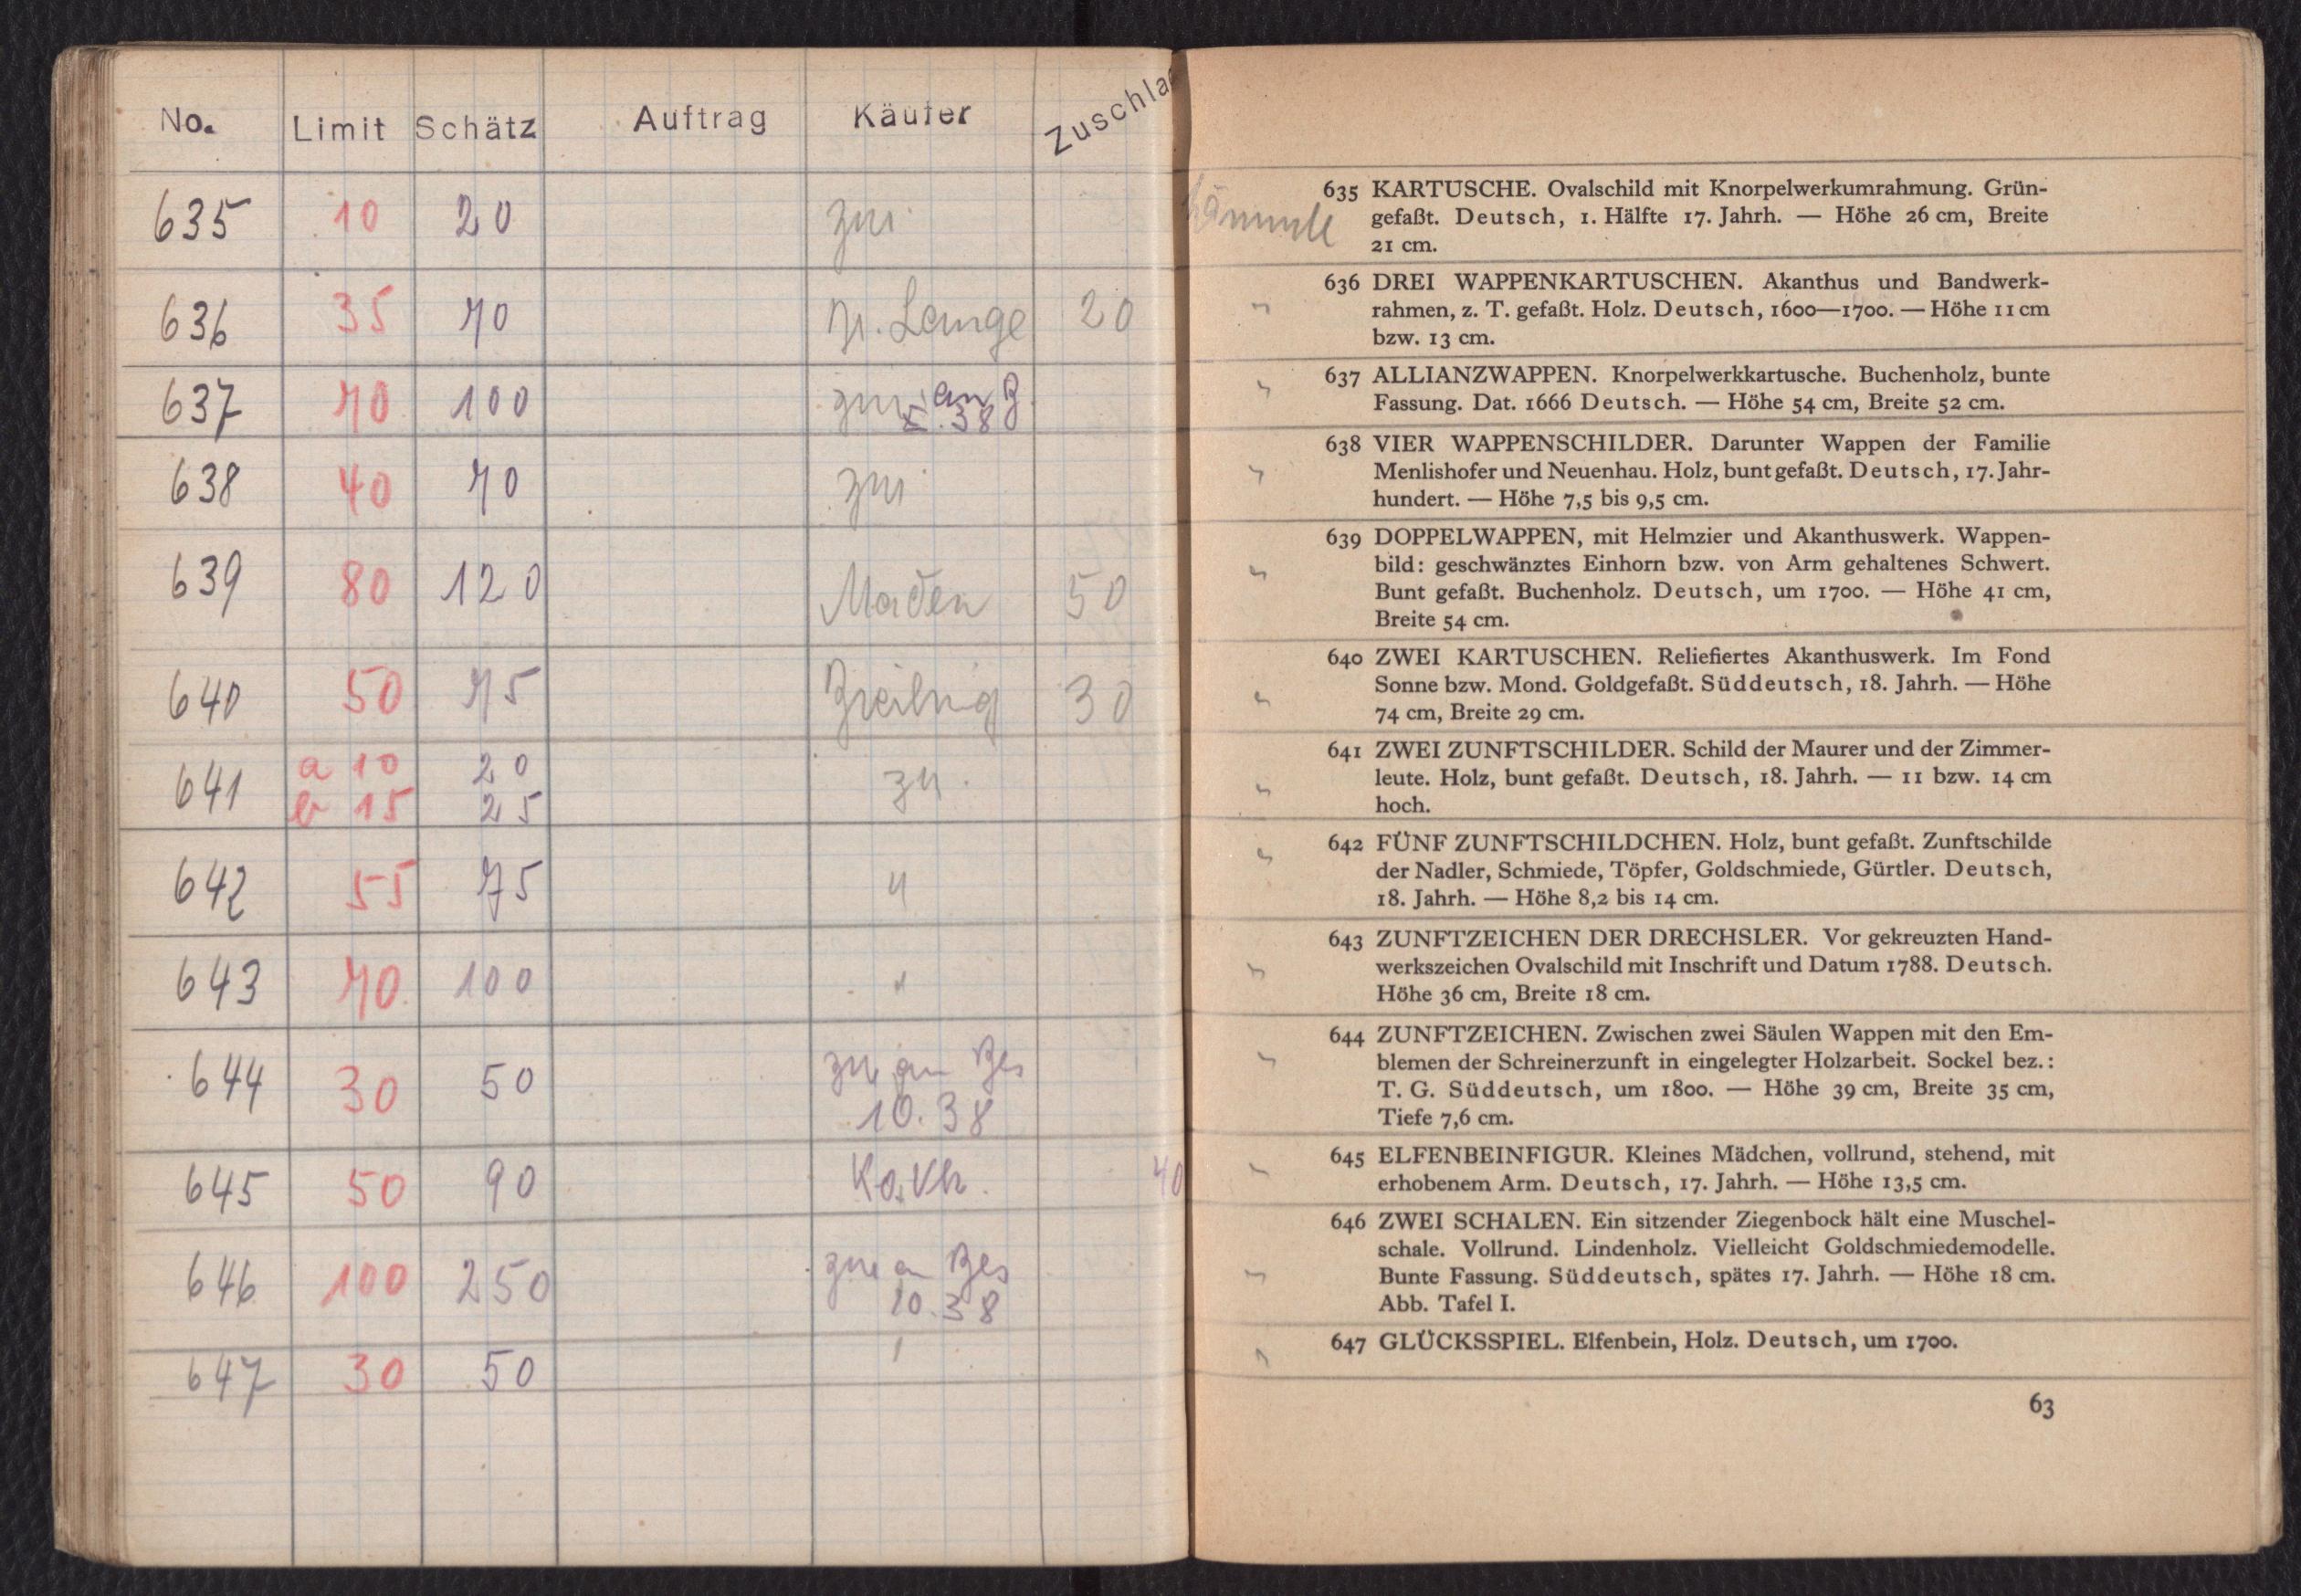 No. Limit Schätz Auftrag Käufer Zuschla
635 10 20 zur
636 35 70 Lange 20
637 70 100 zur an B
5.38
638 40 70 zur
639 80 120 50
640 50 75 30
641 a 10 20 zur
b 15 25
642 55 75 "
643 70 100 "
644 30 50 zur an Bes
10.38
645 50 90 40
646 100 250 zur a Bes
10.38
647 30 50 "
635 KARTUSCHE. Ovalschild mit Knorpelwerkumrahmung. Grün-
gefaßt. Deutsch, 1. Hälfte 17. Jahrh. — Höhe 26 cm, Breite
21 cm.
636 DREI WAPPENKARTUSCHEN. Akanthus und Bandwerk-
rahmen, z. T. gefaßt. Holz. Deutsch, 1600—1700. — Höhe 11 cm
bzw. 13 cm.
637 ALLIANZWAPPEN. Knorpelwerkkartusche. Buchenholz, bunte
Fassung. Dat. 1666 Deutsch. — Höhe 54 cm, Breite 52 cm.
638 VIER WAPPENSCHILDER. Darunter Wappen der Familie
Menlishofer und Neuenhau. Holz, bunt gefaßt. Deutsch, 17. Jahr-
hundert. — Höhe 7,5 bis 9,5 cm.
639 DOPPELWAPPEN, mit Helmzier und Akanthuswerk. Wappen-
bild: geschwänztes Einhorn bzw. von Arm gehaltenes Schwert.
Bunt gefaßt. Buchenholz. Deutsch, um 1700. — Höhe 41 cm,
Breite 54 cm.
640 ZWEI KARTUSCHEN. Reliefiertes Akanthuswerk. Im Fond
Sonne bzw. Mond. Goldgefaßt. Süddeutsch, 18. Jahrh. — Höhe
74 cm, Breite 29 cm.
641 ZWEI ZUNFTSCHILDER. Schild der Maurer und der Zimmer-
leute. Holz, bunt gefaßt. Deutsch, 18. Jahrh. — 11 bzw. 14 cm
hoch.
642 FÜNF ZUNFTSCHILDCHEN. Holz, bunt gefaßt. Zunftschilde
der Nadler, Schmiede, Töpfer, Goldschmiede, Gürtler. Deutsch,
18. Jahrh. — Höhe 8,2 bis 14 cm.
643 ZUNFTZEICHEN DER DRECHSLER. Vor gekreuzten Hand-
werkszeichen Ovalschild mit Inschrift und Datum 1788. Deutsch.
Höhe 36 cm, Breite 18 cm.
644 ZUNFTZEICHEN. Zwischen zwei Säulen Wappen mit den Em-
blemen der Schreinerzunft in eingelegter Holzarbeit. Sockel bez.:
T. G. Süddeutsch, um 1800. — Höhe 39 cm, Breite 35 cm,
Tiefe 7,6 cm.
645 ELFENBEINFIGUR. Kleines Mädchen, vollrund, stehend, mit
erhobenem Arm. Deutsch, 17. Jahrh. — Höhe 13,5 cm.
646 ZWEI SCHALEN. Ein sitzender Ziegenbock hält eine Muschel-
schale. Vollrund. Lindenholz. Vielleicht Goldschmiedemodelle.
Bunte Fassung. Süddeutsch, spätes 17. Jahrh. — Höhe 18 cm.
Abb. Tafel I.
647 GLÜCKSSPIEL. Elfenbein, Holz. Deutsch, um 1700.
63